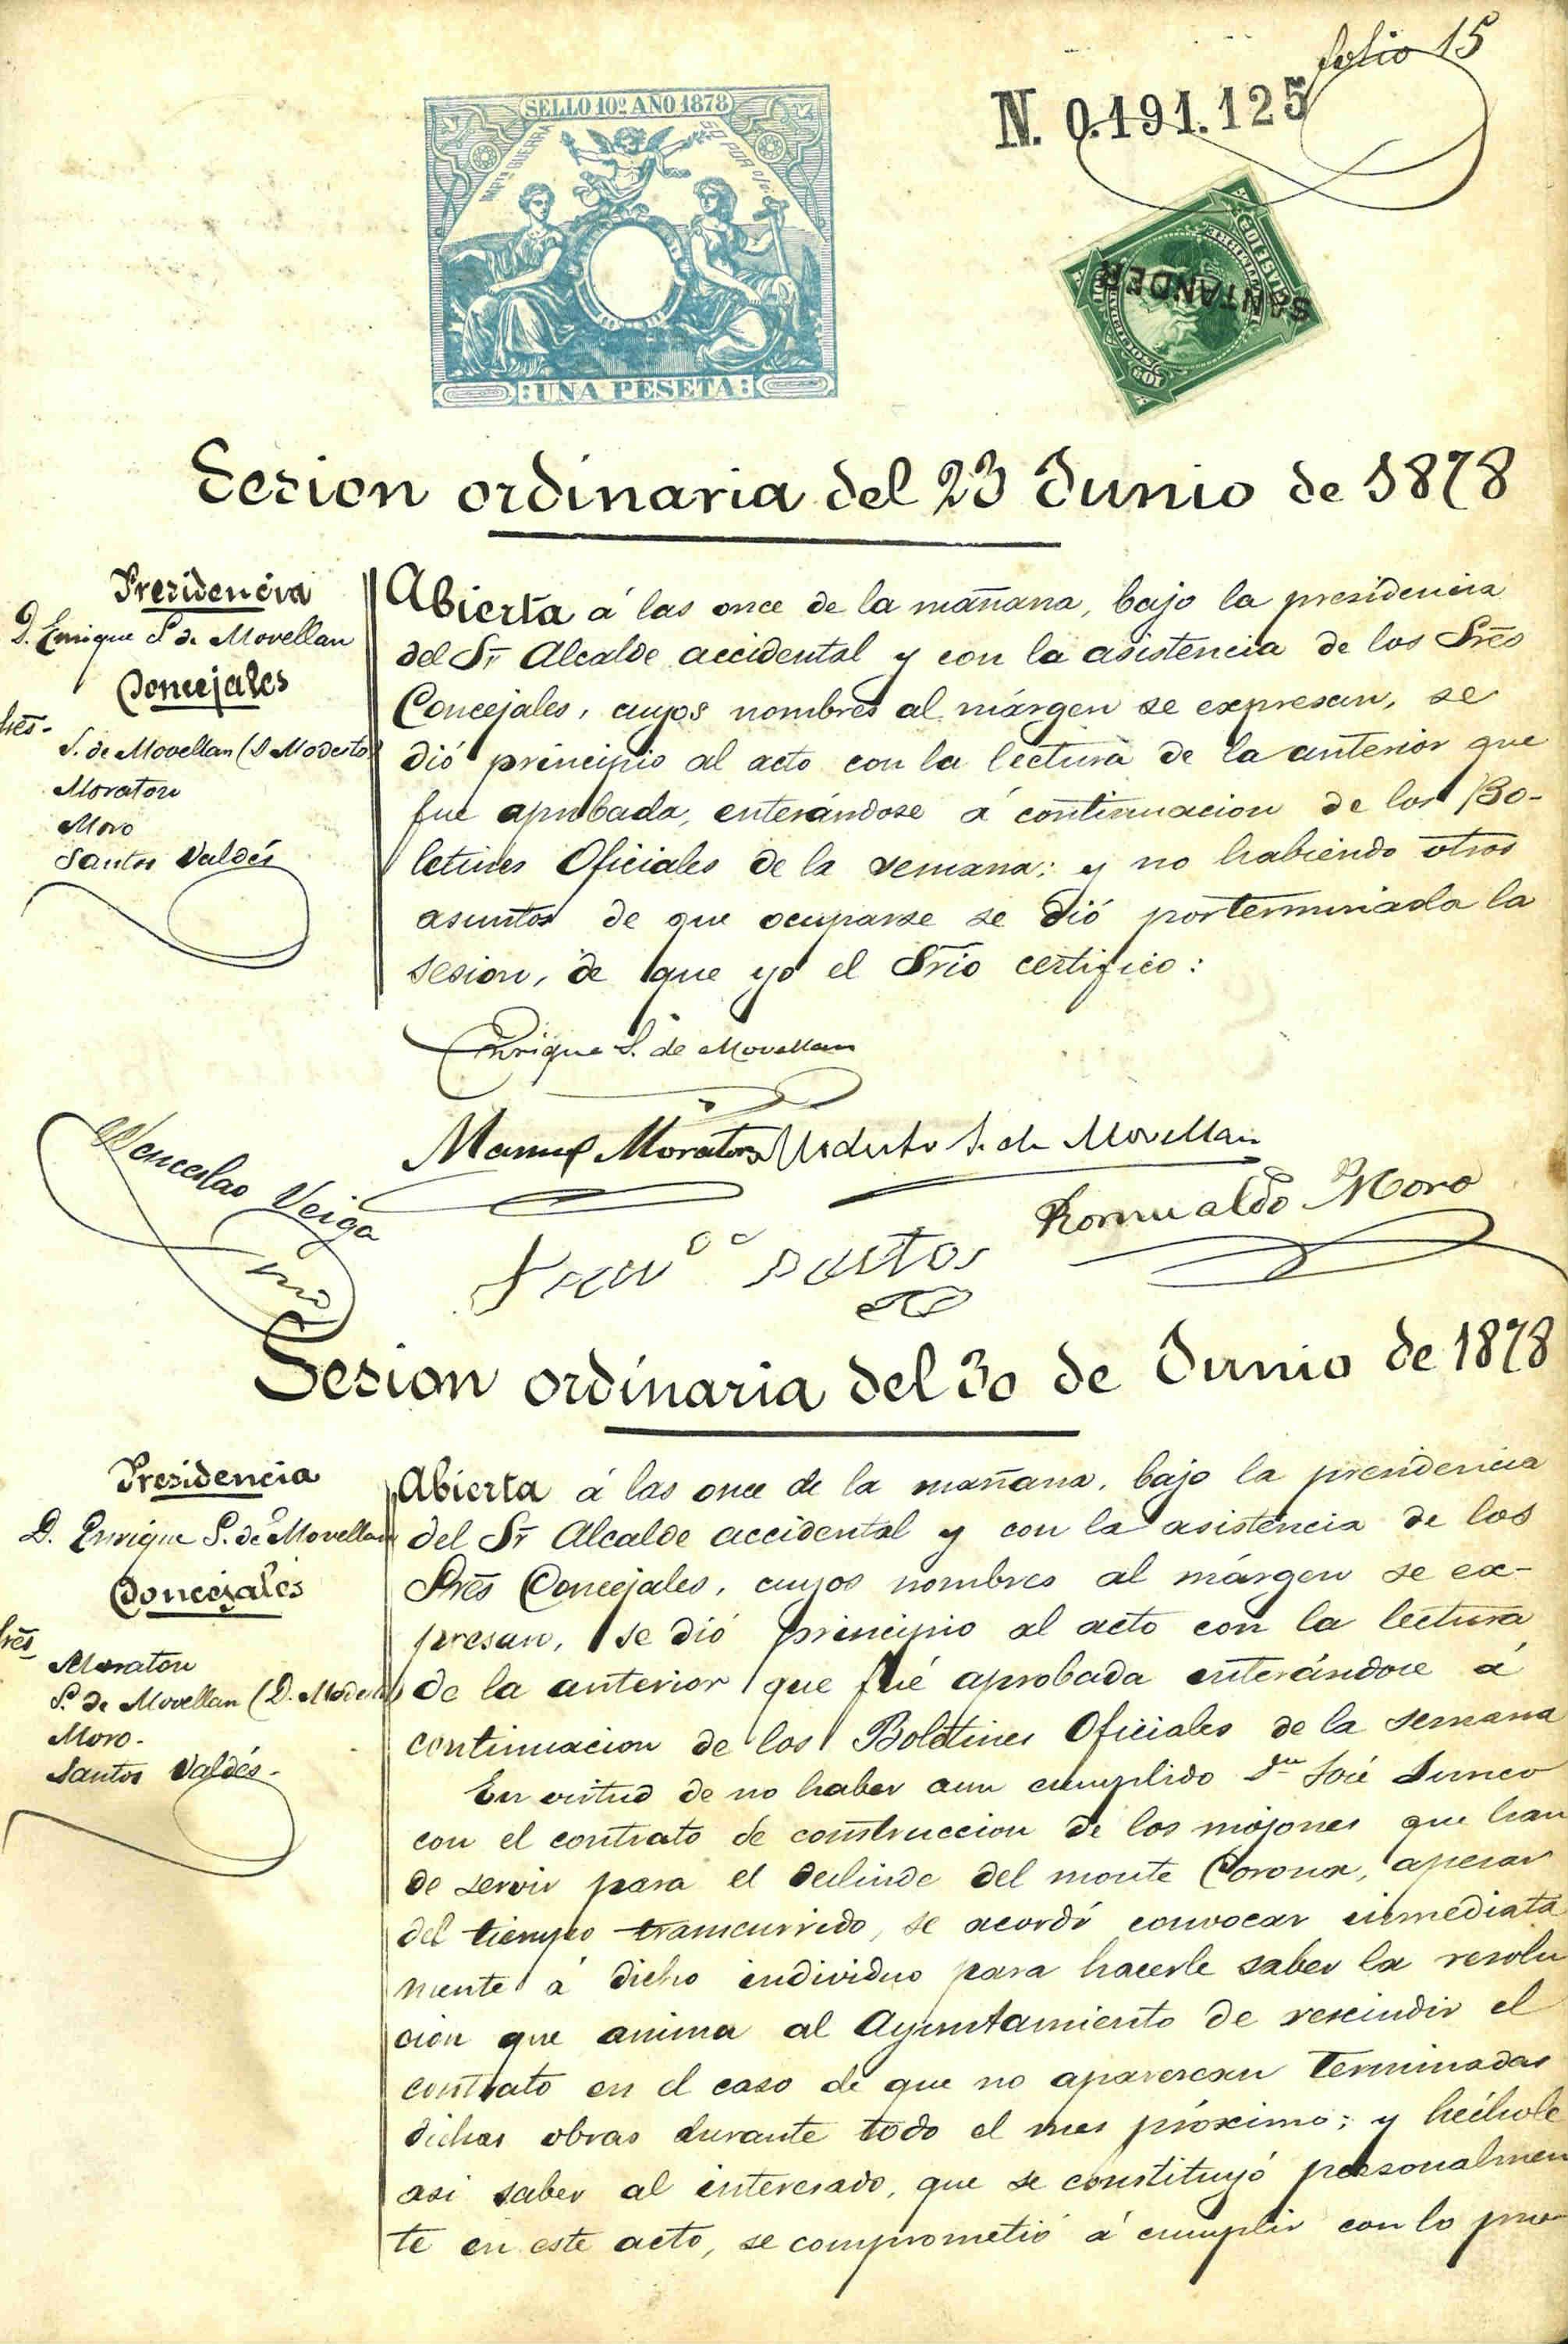 folio 15
N. 0.191.125
SELLO 10º AÑO 1878
UNA PESETA
SANTANDER
Sesion ordinaria del 23 Junio de 1878
Presidencia
D. Enrique S. de Movellan
Concejales
Sres.
S. de Movellan (D Modesto)
Moraton
Moro
Santos Valdés
Abierta á las once de la mañana, bajo la presidencia
del Sr Alcalde accidental y con la asistencia de los Sres
Concejales, cuyos nombres al márgen se expresan, se
dió principio al acto con la lectura de la anterior que
fue aprobada, enterándose á continuacion de los Bo-
letines Oficiales de la semana; y no habiendo otros
asuntos de que ocuparse se dió por terminada la
sesion, de que yo el Srio certifico:
Enrique S. de Movellan
Manuel Moraton Modesto S. de Movellan
Wenceslao Veiga
Romualdo Moro
Franco Santos
Sesion ordinaria del 30 de Junio de 1878
Presidencia
D. Enrique S. de Movellan
Concejales
Sres
Moraton
S. de Movellan (D. Modesto)
Moro.
Santos Valdés.
Abierta á las once de la mañana, bajo la presidencia
del Sr Alcalde accidental y con la asistencia de los
Sres Concejales, cuyos nombres al márgen se ex-
presan, se dió principio al acto con la lectura
de la anterior que fué aprobada enterándose á
continuacion de los Boletines Oficiales de la semana
En virtud de no haber aun cumplido Dn José Junco
con el contrato de construccion de los mojones que han
de servir para el deslinde del monte Corona, apesar
del tiempo transcurrido, se acordó convocar inmediata
mente á dicho individuo para hacerle saber la resolu
cion que anima al Ayuntamiento de rescindir el
contrato en el caso de que no aparezcan terminadas
dichas obras durante todo el mes próximo; y hechole
asi saber al interesado, que se constituyó personalmen
te en este acto, se comprometió á cumplir con lo pre